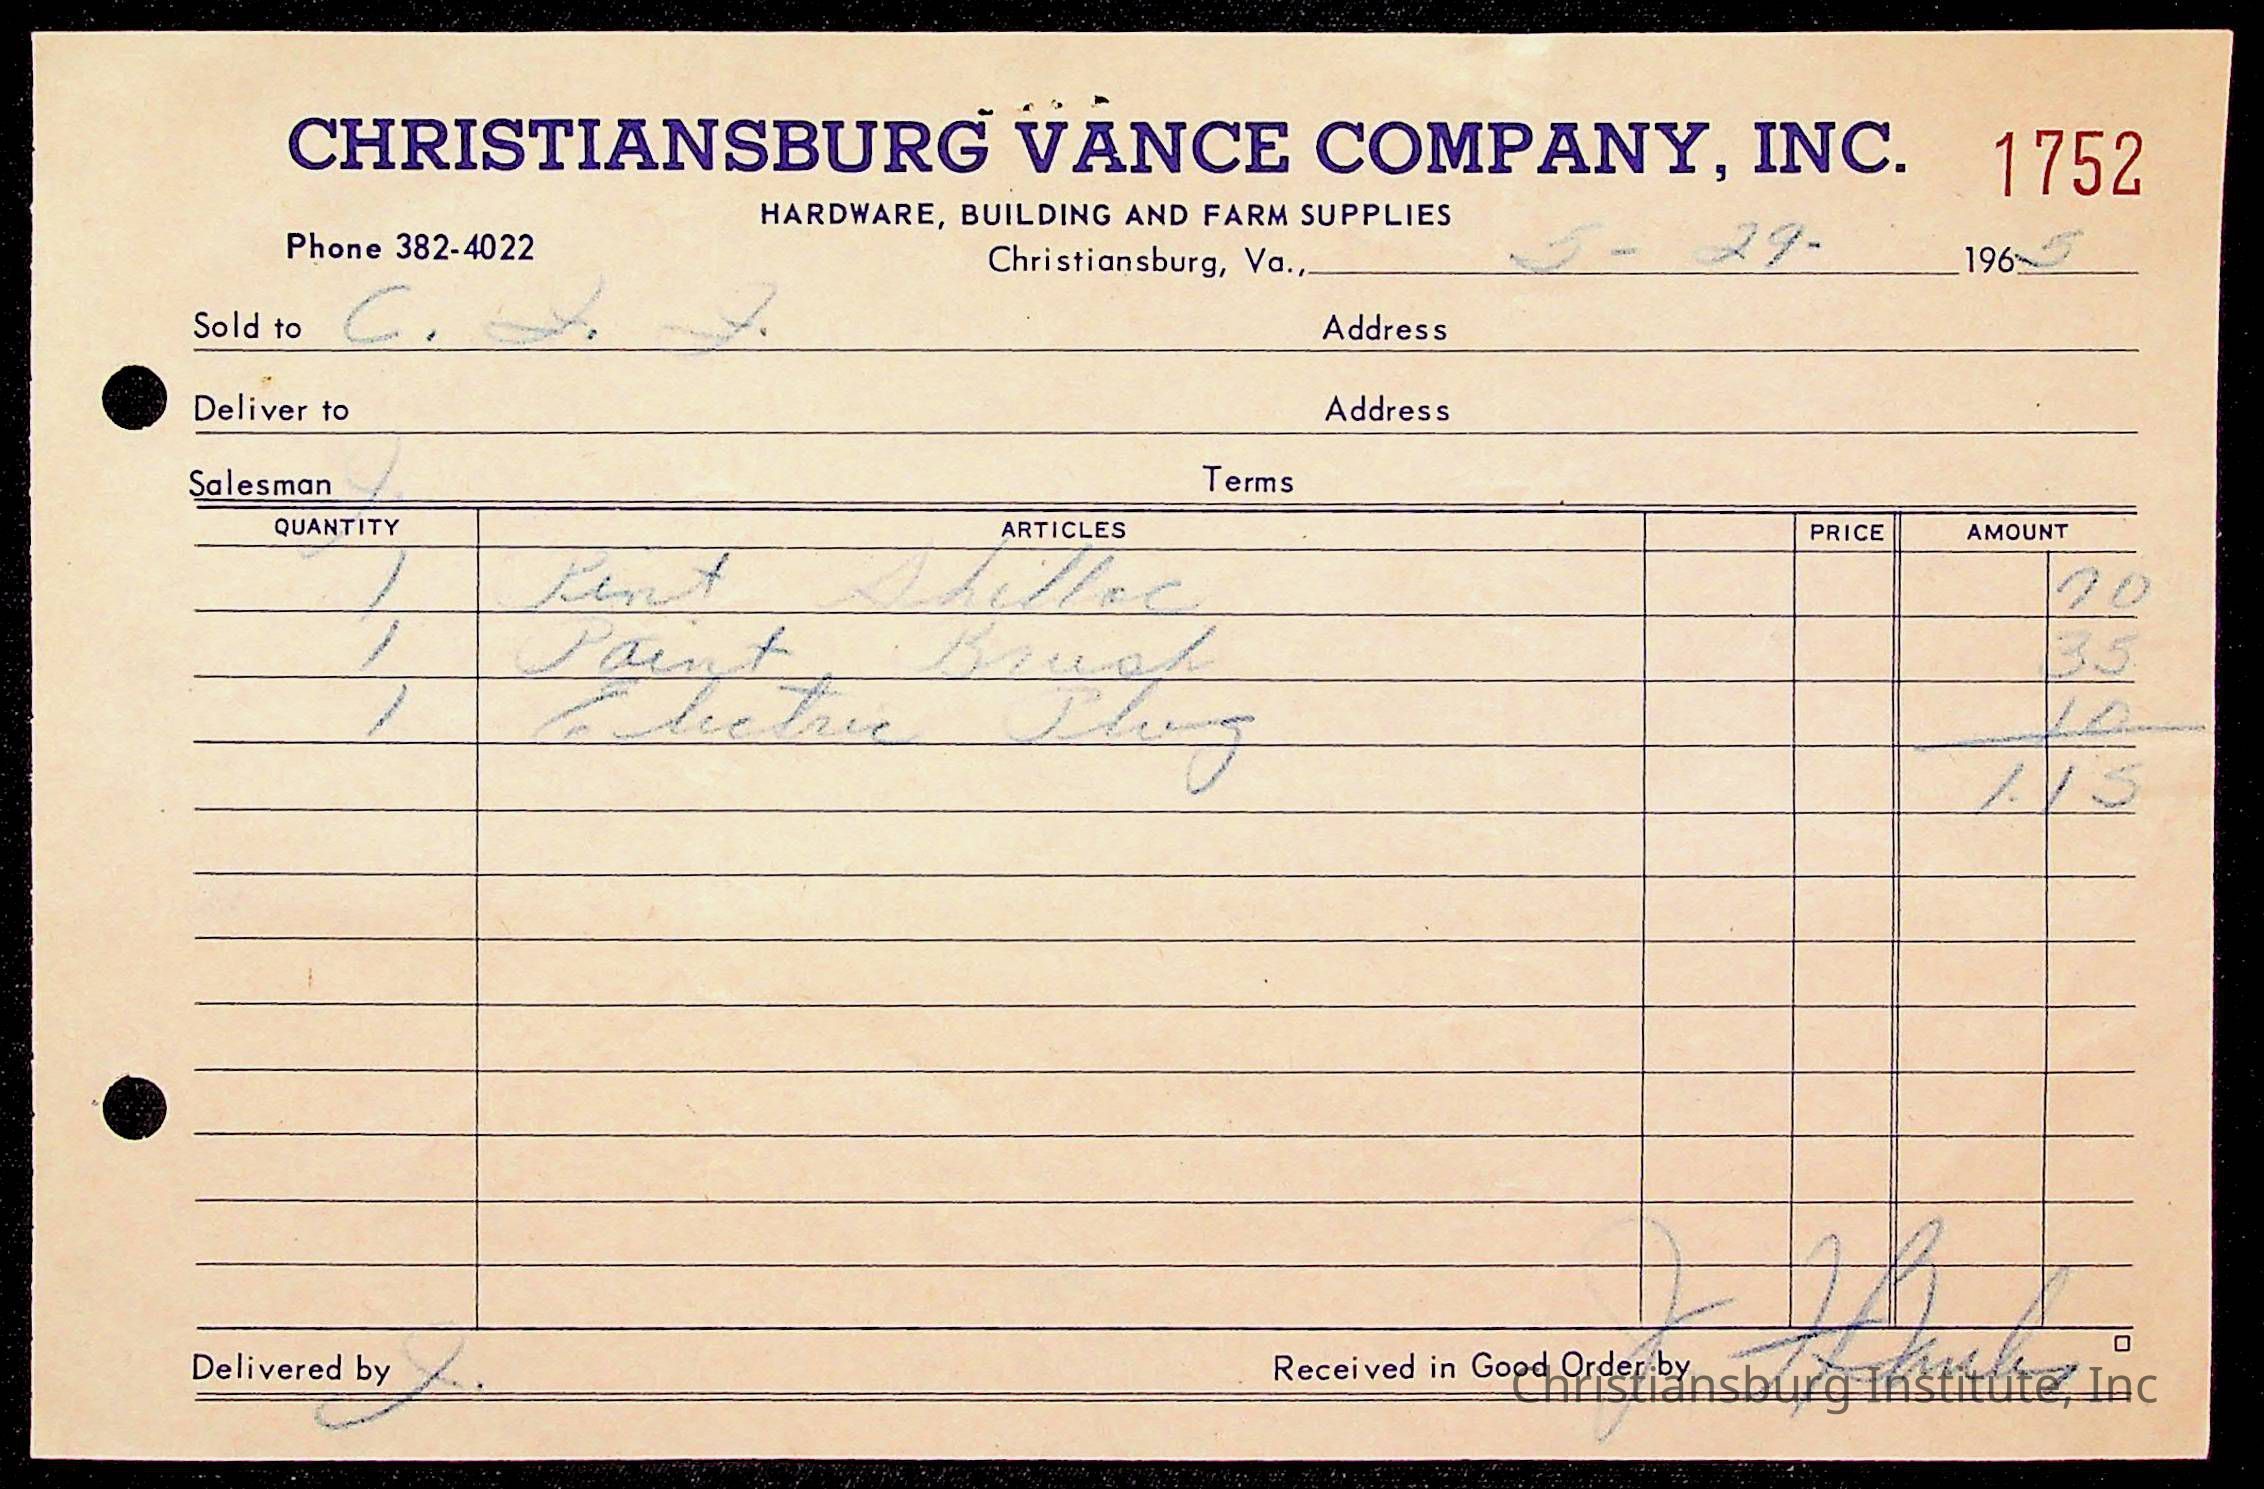 CHRISTIANSBURG VANCE COMPANY, INC. 1752
HARDWARE, BUILDING AND FARM SUPPLIES
Phone 382-4022
Christiansburg, Va., 5 - 29- 1965
Sold to C. I. I. Address
Deliver to Address
Salesman J. Terms
QUANTITY ARTICLES PRICE AMOUNT
1 Pint Shellac 70
1 Paint Brush 35
1 Electric Plug 10
1.15
Delivered by J. Received in Good Order by
Christiansburg Institute, Inc